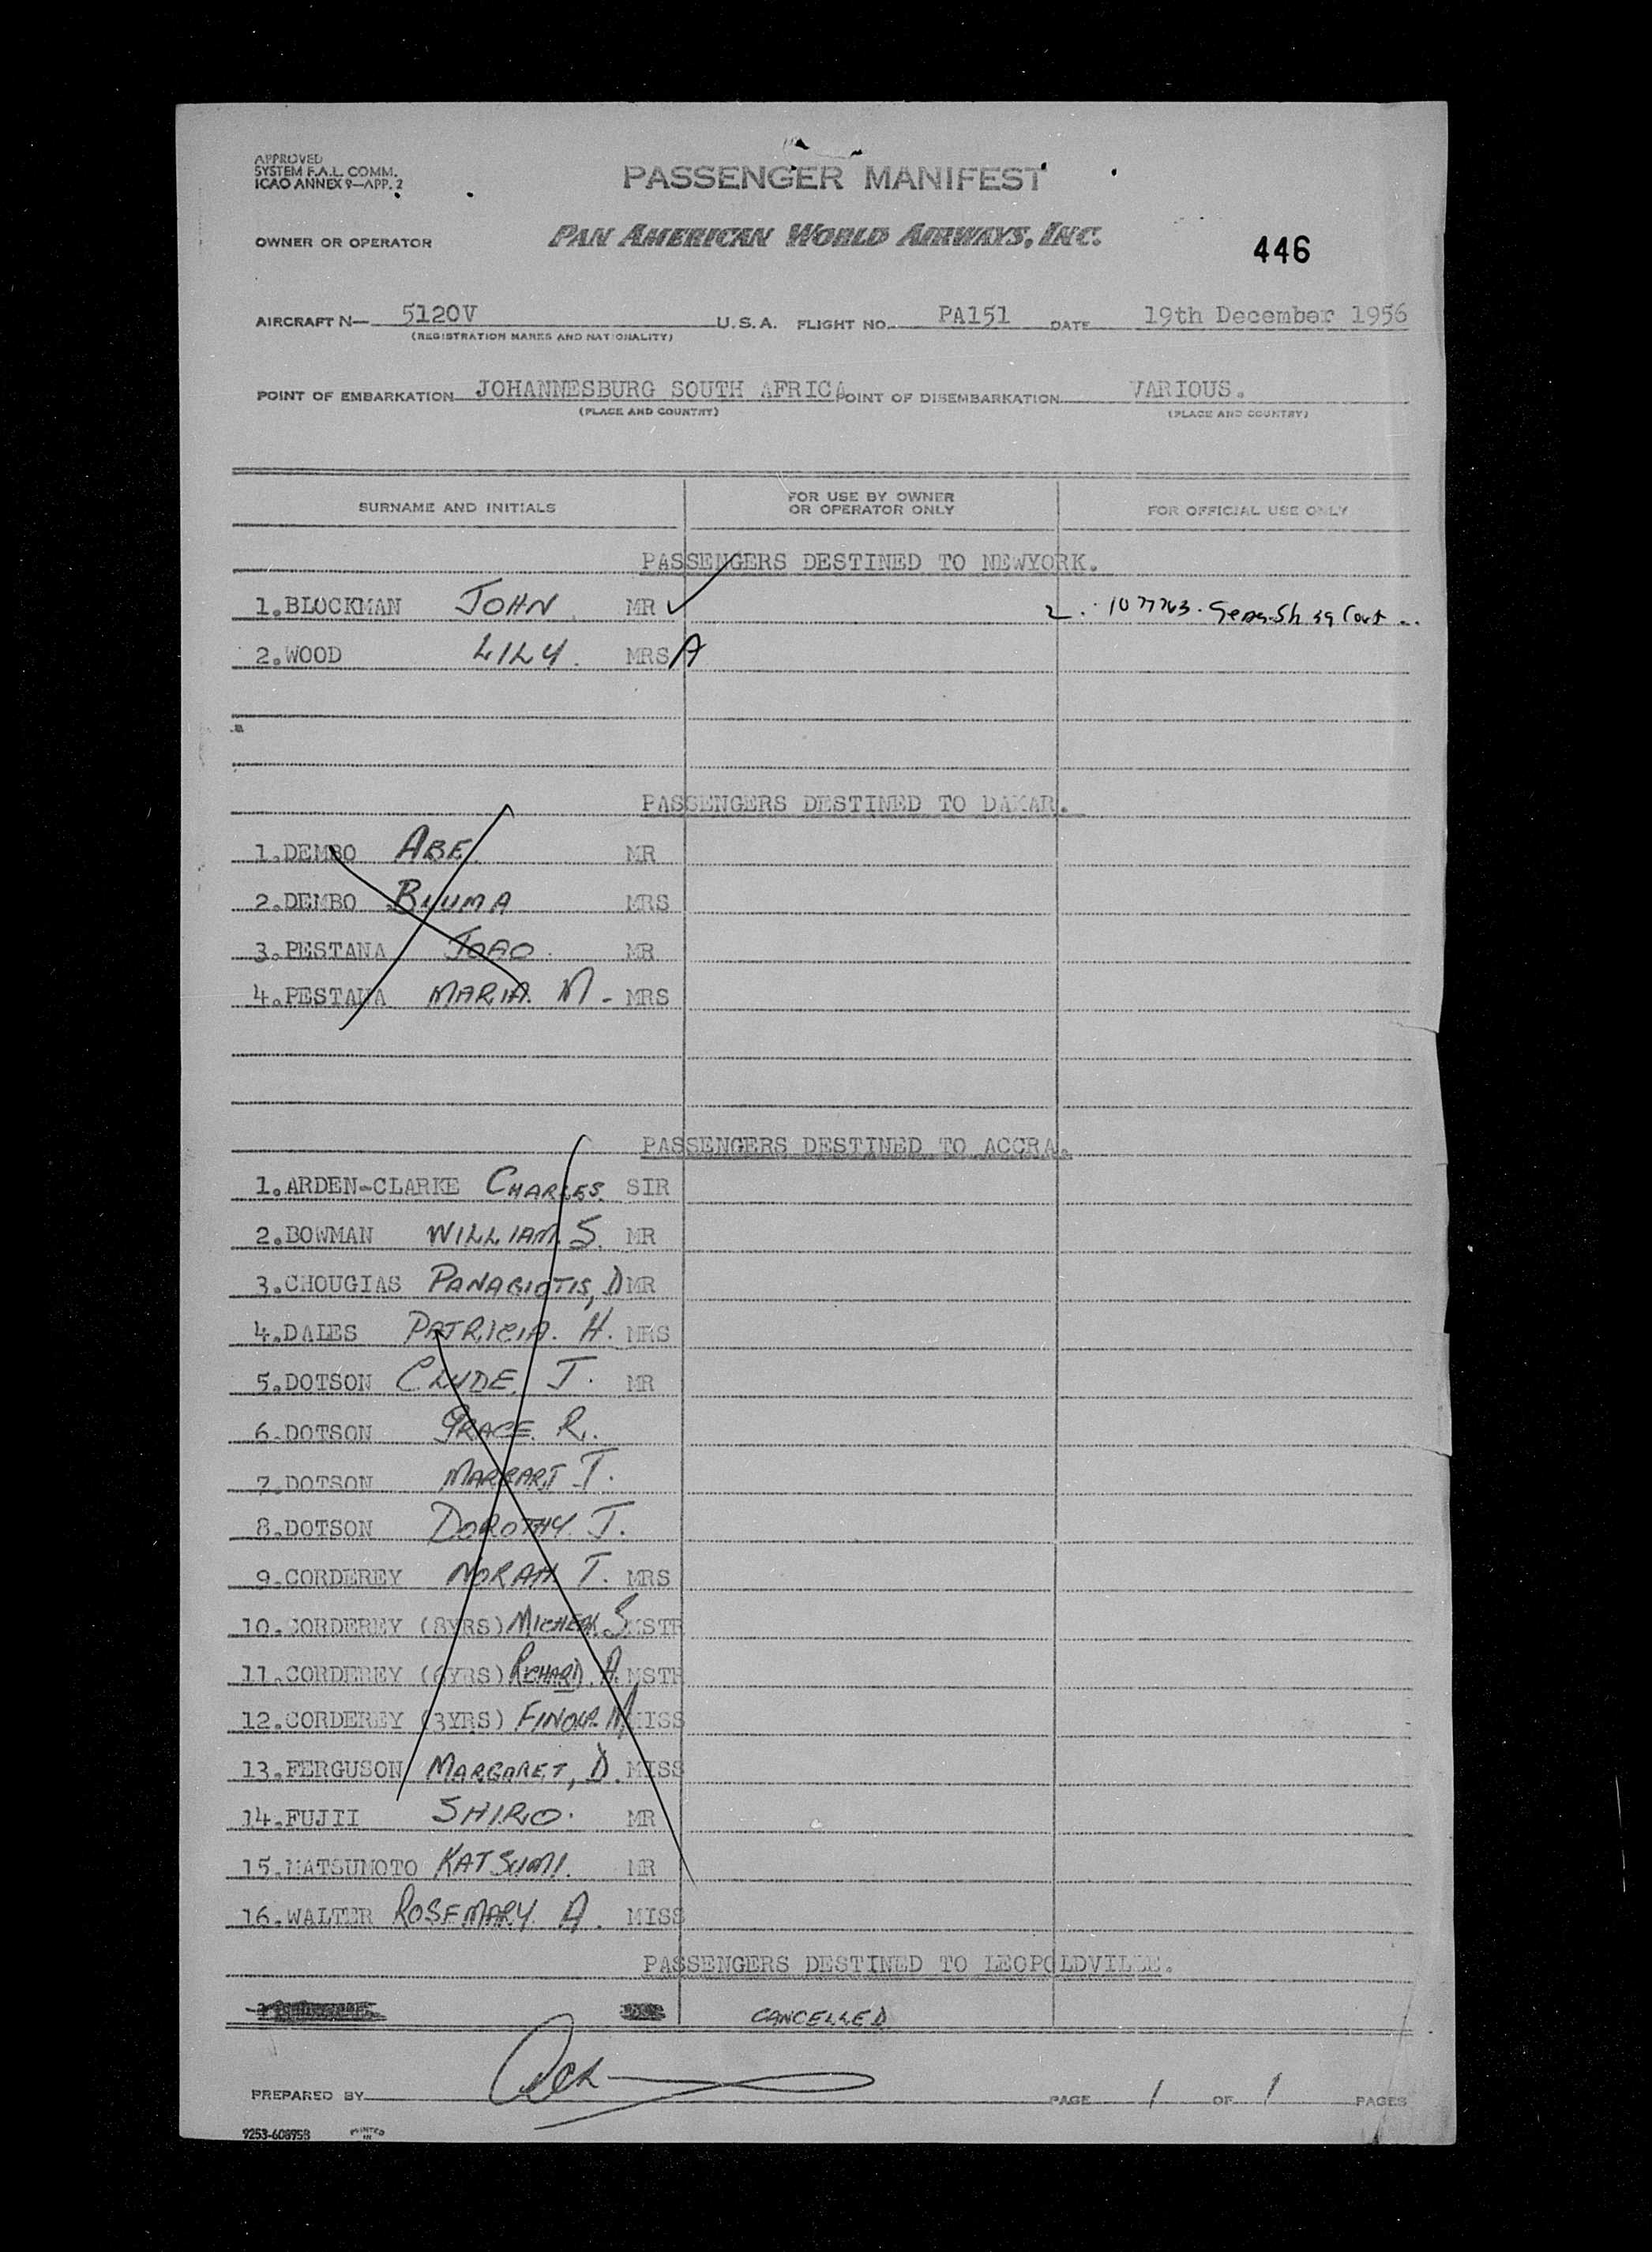 APPROVED
SYSTEM F.A.L. COMM.
ICAO ANNEX 9—APP. 2
PASSENGER MANIFEST
OWNER OR OPERATOR PAN AMERICAN WORLD AIRWAYS, INC.
446
AIRCRAFT N— 5120V U.S.A. FLIGHT NO. PA151 DATE 19th December 1956
(REGISTRATION MARKS AND NATIONALITY)
POINT OF EMBARKATION JOHANNESBURG SOUTH AFRICA POINT OF DISEMBARKATION VARIOUS.
(PLACE AND COUNTRY) (PLACE AND COUNTRY)
SURNAME AND INITIALS FOR USE BY OWNER OR OPERATOR ONLY FOR OFFICIAL USE ONLY
PASSENGERS DESTINED TO NEWYORK.
1.BLOCKMAN JOHN. MR ✓ 2. 1077763.
2.WOOD LILY. MRS A
PASSENGERS DESTINED TO DAKAR.
1.DEMBO ABE. MR
2.DEMBO BLUMA MRS
3.PESTANA JOAO. MR
4.PESTANA MARIA. M - MRS
PASSENGERS DESTINED TO ACCRA.
1.ARDEN-CLARKE CHARLES. SIR
2.BOWMAN WILLIAM. S. MR
3.CHOUGIAS PANAGIOTIS, D MR
4.DALES PATRICIA. H. MRS
5.DOTSON CLYDE. J. MR
6.DOTSON GRACE. R.
7.DOTSON MARGART J.
8.DOTSON DOROTHY. J.
9.CORDEREY NORAH T. MRS
10.CORDEREY (8YRS) S MSTR
11.CORDEREY (6YRS) RICHARD. A. MSTR
12.CORDEREY (3YRS) MISS
13.FERGUSON MARGARET, D. MISS
14.FUJII SHIRO. MR
15.MATSUMOTO KATSUMI. MR
16.WALTER ROSEMARY A. MISS
PASSENGERS DESTINED TO LEOPOLDVILLE.
CANCELLED
PREPARED BY PAGE 1 OF 1 PAGES
9253-608958 PRINTED IN